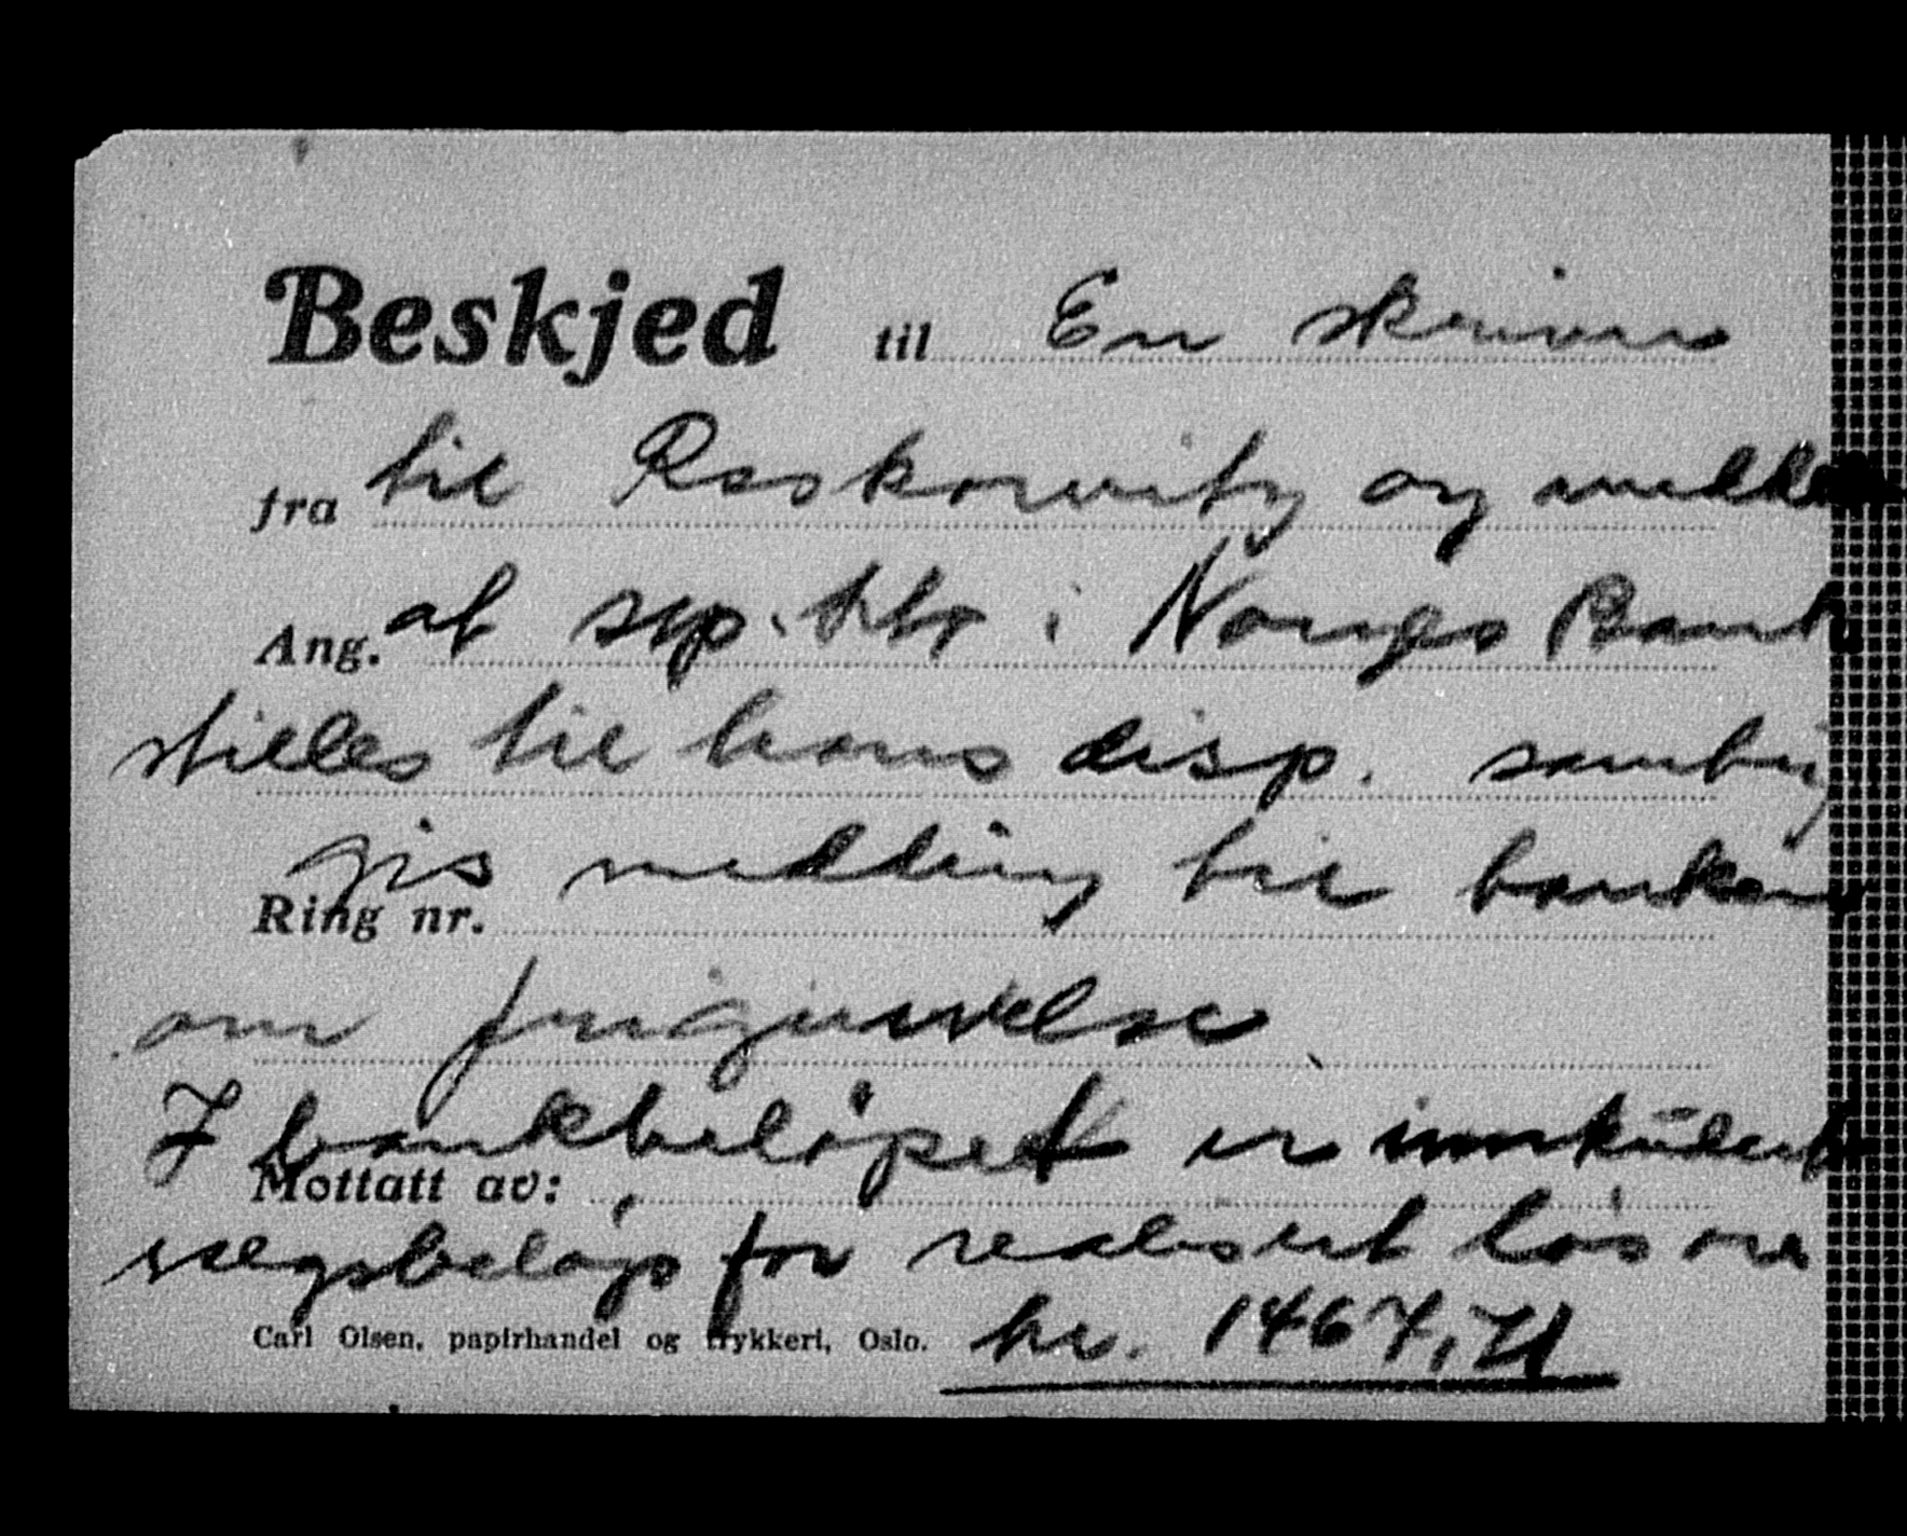 Beskjed til En skriver
fra til Raskowitz og meddeler
Ang. at sep. kto i Norges Bank
stilles til hans disp. samtidig
gis melding til banken
Ring nr.
om frigivelse.
I bankbeløpet er inkludert
Mottatt av:
salgsbeløp for realisert løsøre
Carl Olsen, papirhandel og trykkeri, Oslo. kr. 1467,71